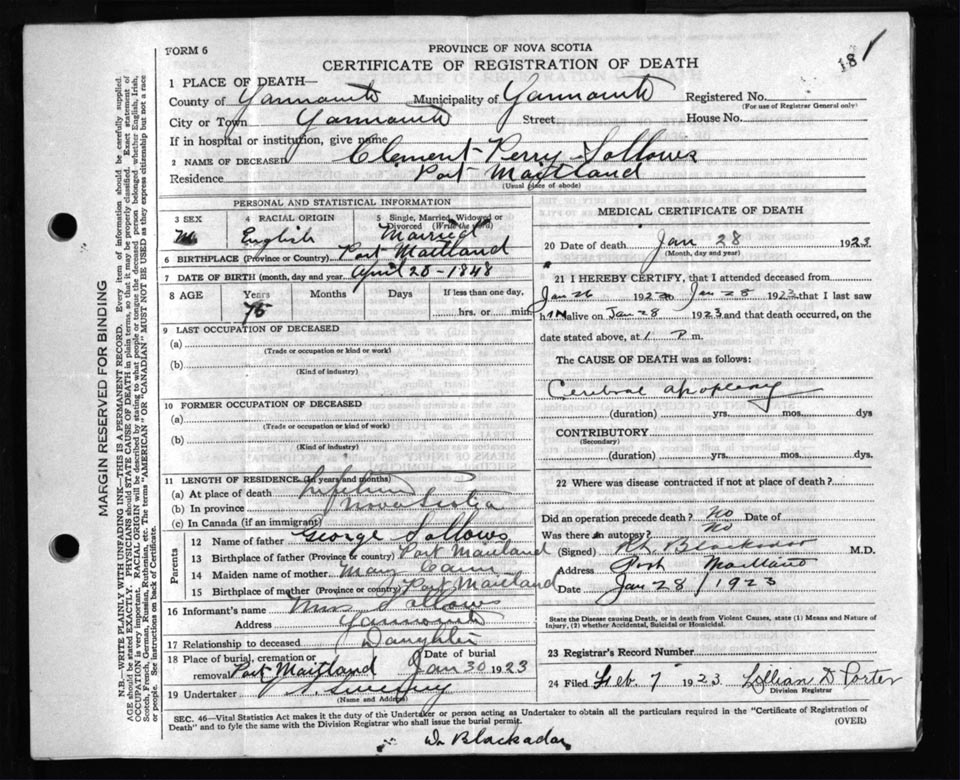 FORM 6
PROVINCE OF NOVA SCOTIA
CERTIFICATE OF REGISTRATION OF DEATH
18
1 PLACE OF DEATH—
County of Yarmouth Municipality of Yarmouth Registered No.
(For use of Registrar General only)
City or Town Yarmouth Street House No.
If in hospital or institution, give name
2 NAME OF DECEASED Clement Perry Sollows
Residence Port Maitland
(Usual place of abode)
PERSONAL AND STATISTICAL INFORMATION
3 SEX 4 RACIAL ORIGIN 5 Single, Married, Widowed or Divorced (Write the word)
M English Married
6 BIRTHPLACE (Province or Country) Port Maitland
7 DATE OF BIRTH (month, day and year) April 20-1848
8 AGE Years Months Days If less than one day,
75 hrs. or min.
9 LAST OCCUPATION OF DECEASED
(a)
(Trade or occupation or kind or work)
(b)
(Kind of industry)
10 FORMER OCCUPATION OF DECEASED
(a)
(Trade or occupation or kind of work)
(b)
(Kind of industry)
11 LENGTH OF RESIDENCE (In years and months)
(a) At place of death Lifetime
(b) In province Nova Scotia
(c) In Canada (if an immigrant)
Parents
12 Name of father George Sollows
13 Birthplace of father (Province or country) Port Maitland
14 Maiden name of mother Mary Cann
15 Birthplace of mother (Province or country) Port Maitland
16 Informant's name Miss Sollows
Address Yarmouth
17 Relationship to deceased Daughter
18 Place of burial, cremation or removal Port Maitland Date of burial Jan 30 1923
19 Undertaker Sweeny
(Name and Address)
MEDICAL CERTIFICATE OF DEATH
20 Date of death Jan 28 1923
(Month, day and year)
21 I HEREBY CERTIFY, that I attended deceased from
Jan 26 192 Jan 28 1923 that I last saw
him alive on Jan 28 1923 and that death occurred, on the
date stated above, at 1 P m.
The CAUSE OF DEATH was as follows:
Cerebral apoplexy
(duration) yrs. mos. dys
CONTRIBUTORY
(Secondary)
(duration) yrs. mos. dys.
22 Where was disease contracted if not at place of death?
Did an operation precede death? No Date of
Was there an autopsy? No
(Signed) Blackadar M.D.
Address Port Maitland
Date Jan 28 / 1923
State the Disease causing Death, or in death from Violent Causes, state (1) Means and Nature of
Injury, (2) whether Accidental, Suicidal or Homicidal.
23 Registrar's Record Number
24 Filed Feb. 7 1923 Lillian D Porter
Division Registrar
SEC. 46—Vital Statistics Act makes it the duty of the Undertaker or person acting as Undertaker to obtain all the particulars required in the "Certificate of Registration of
Death" and to fyle the same with the Division Registrar who shall issue the burial permit. (OVER)
Dr Blackadar
MARGIN RESERVED FOR BINDING
N.B.—WRITE PLAINLY WITH UNFADING INK—THIS IS A PERMANENT RECORD. Every item of information should be carefully supplied.
AGE should be stated EXACTLY. PHYSICIANS should STATE CAUSE OF DEATH in plain terms, so that it may be properly classified. Exact statement of
OCCUPATION is very important. RACIAL ORIGIN will be described by stating to what people or tongue the deceased person belonged whether English, Irish,
Scotch, French, German, Russian, Ruthenian, etc. The terms "AMERICAN" or "CANADIAN" MUST NOT BE USED as they express citizenship but not a race
or people. See instructions on back of Certificate.